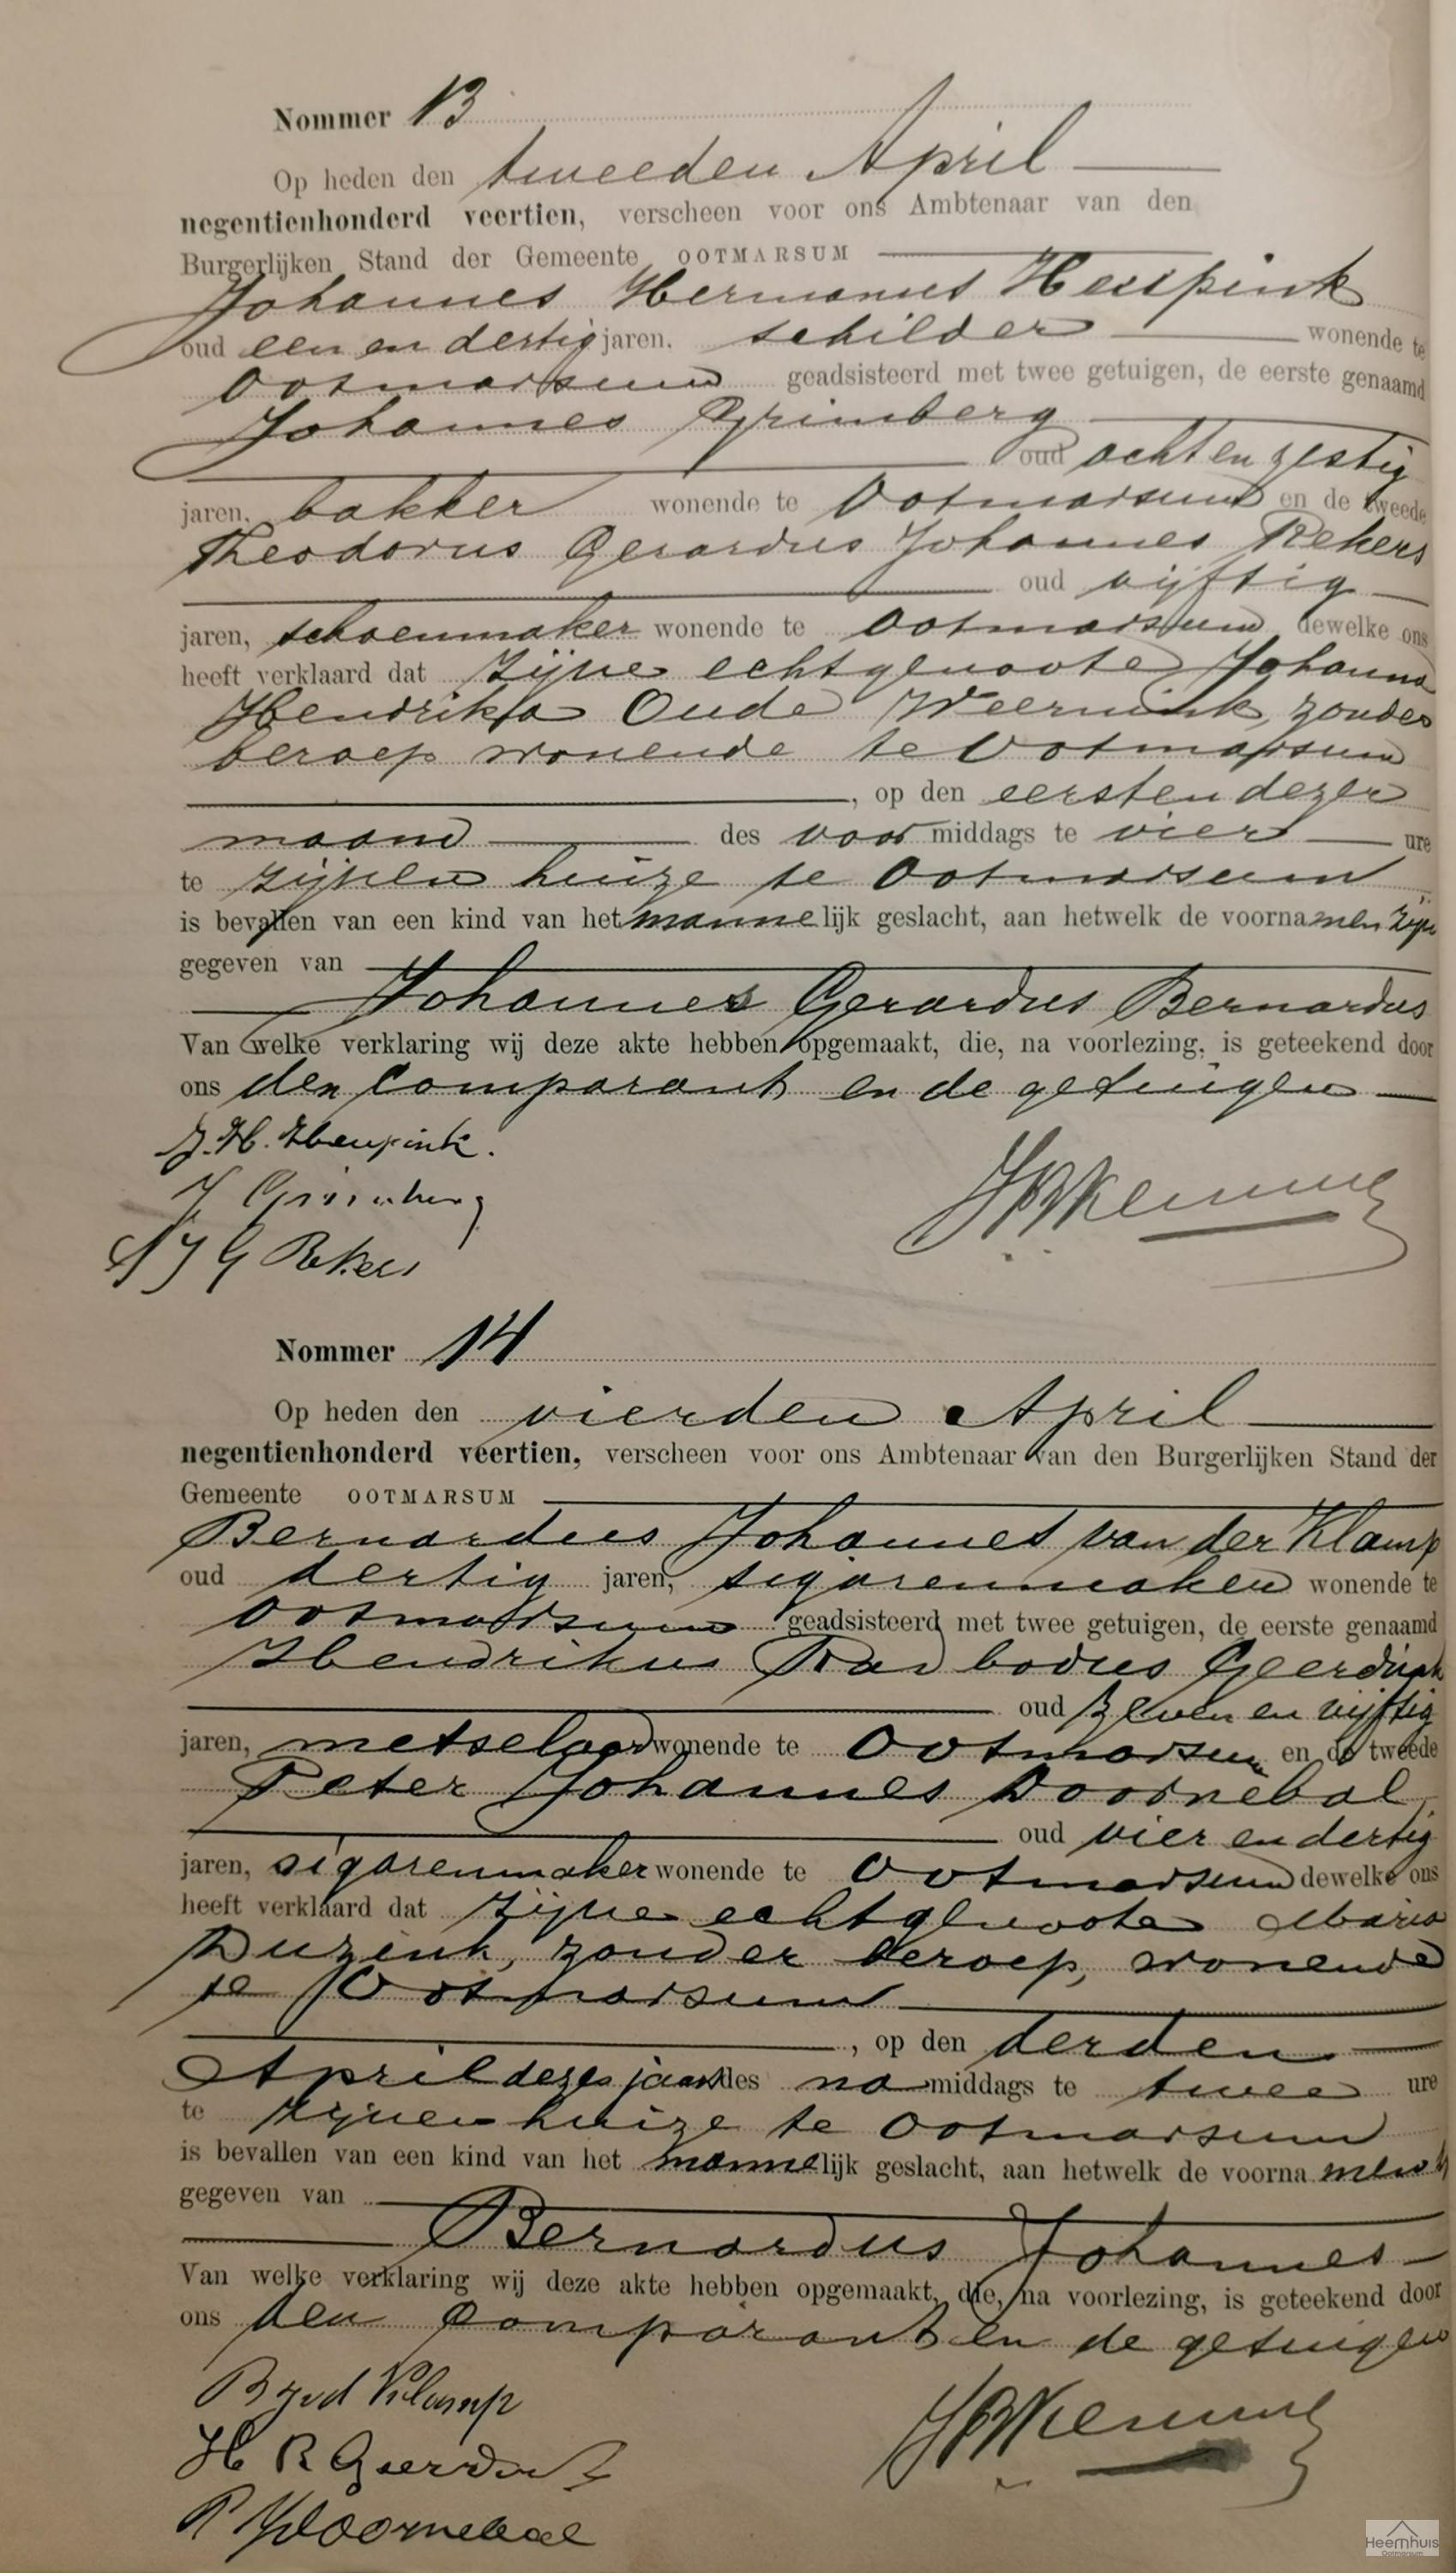 Nommer 13
Op heden den tweeden April
negentienhonderd veertien, verscheen voor ons Ambtenaar van den
Burgerlijken Stand der Gemeente OOTMARSUM
Johannes Hermannus Heupink
oud een en dertig jaren, schilder wonende te
Ootmarsum geadsisteerd met twee getuigen, de eerste genaamd
Johannes Grimberg
oud acht en zestig
jaren, bakker wonende te Ootmarsum en de tweede
Theodorus Gerardus Johannes Rekers
oud vijftig
jaren, schoenmaker wonende te Ootmarsum dewelke ons
heeft verklaard dat zijne echtgenoote Johanna
Hendrika Oude Weernink, zonder
beroep wonende te Ootmarsum
, op den eersten dezer
maand des voor middags te vier ure
te zijnen huize te Ootmarsum
is bevallen van een kind van het mannelijk geslacht, aan hetwelk de voornamen zijn
gegeven van
Johannes Gerardus Bernardus
Van welke verklaring wij deze akte hebben opgemaakt, die, na voorlezing, is geteekend door
ons den comparant en de getuigen
J. H. Heupink.
J Grimberg
J G Rekers
Nommer 14
Op heden den vierden April
negentienhonderd veertien, verscheen voor ons Ambtenaar van den Burgerlijken Stand der
Gemeente OOTMARSUM
Bernardus Johannes van der Klamp
oud dertig jaren, sigarenmaker wonende te
Ootmarsum geadsisteerd met twee getuigen, de eerste genaamd
Hendrikus Radbodus Geerdink
oud zeven en vijftig
jaren, metselaar wonende te Ootmarsum en de tweede
Peter Johannes Doornebal
oud vier en dertig
jaren, sigarenmaker wonende te Ootmarsum dewelke ons
heeft verklaard dat zijne echtgenoote Maria
Duzink, zonder beroep, wonende
te Ootmarsum
, op den derden
April dezes jaars des na middags te twee ure
te zijnen huize te Ootmarsum
is bevallen van een kind van het mannelijk geslacht, aan hetwelk de voornamen
gegeven van
Bernardus Johannes
Van welke verklaring wij deze akte hebben opgemaakt, die, na voorlezing, is geteekend door
ons den comparant en de getuigen
B J v d Klamp
H R Geerdink
P J Doornebal
Heemhuis
Ootmarsum